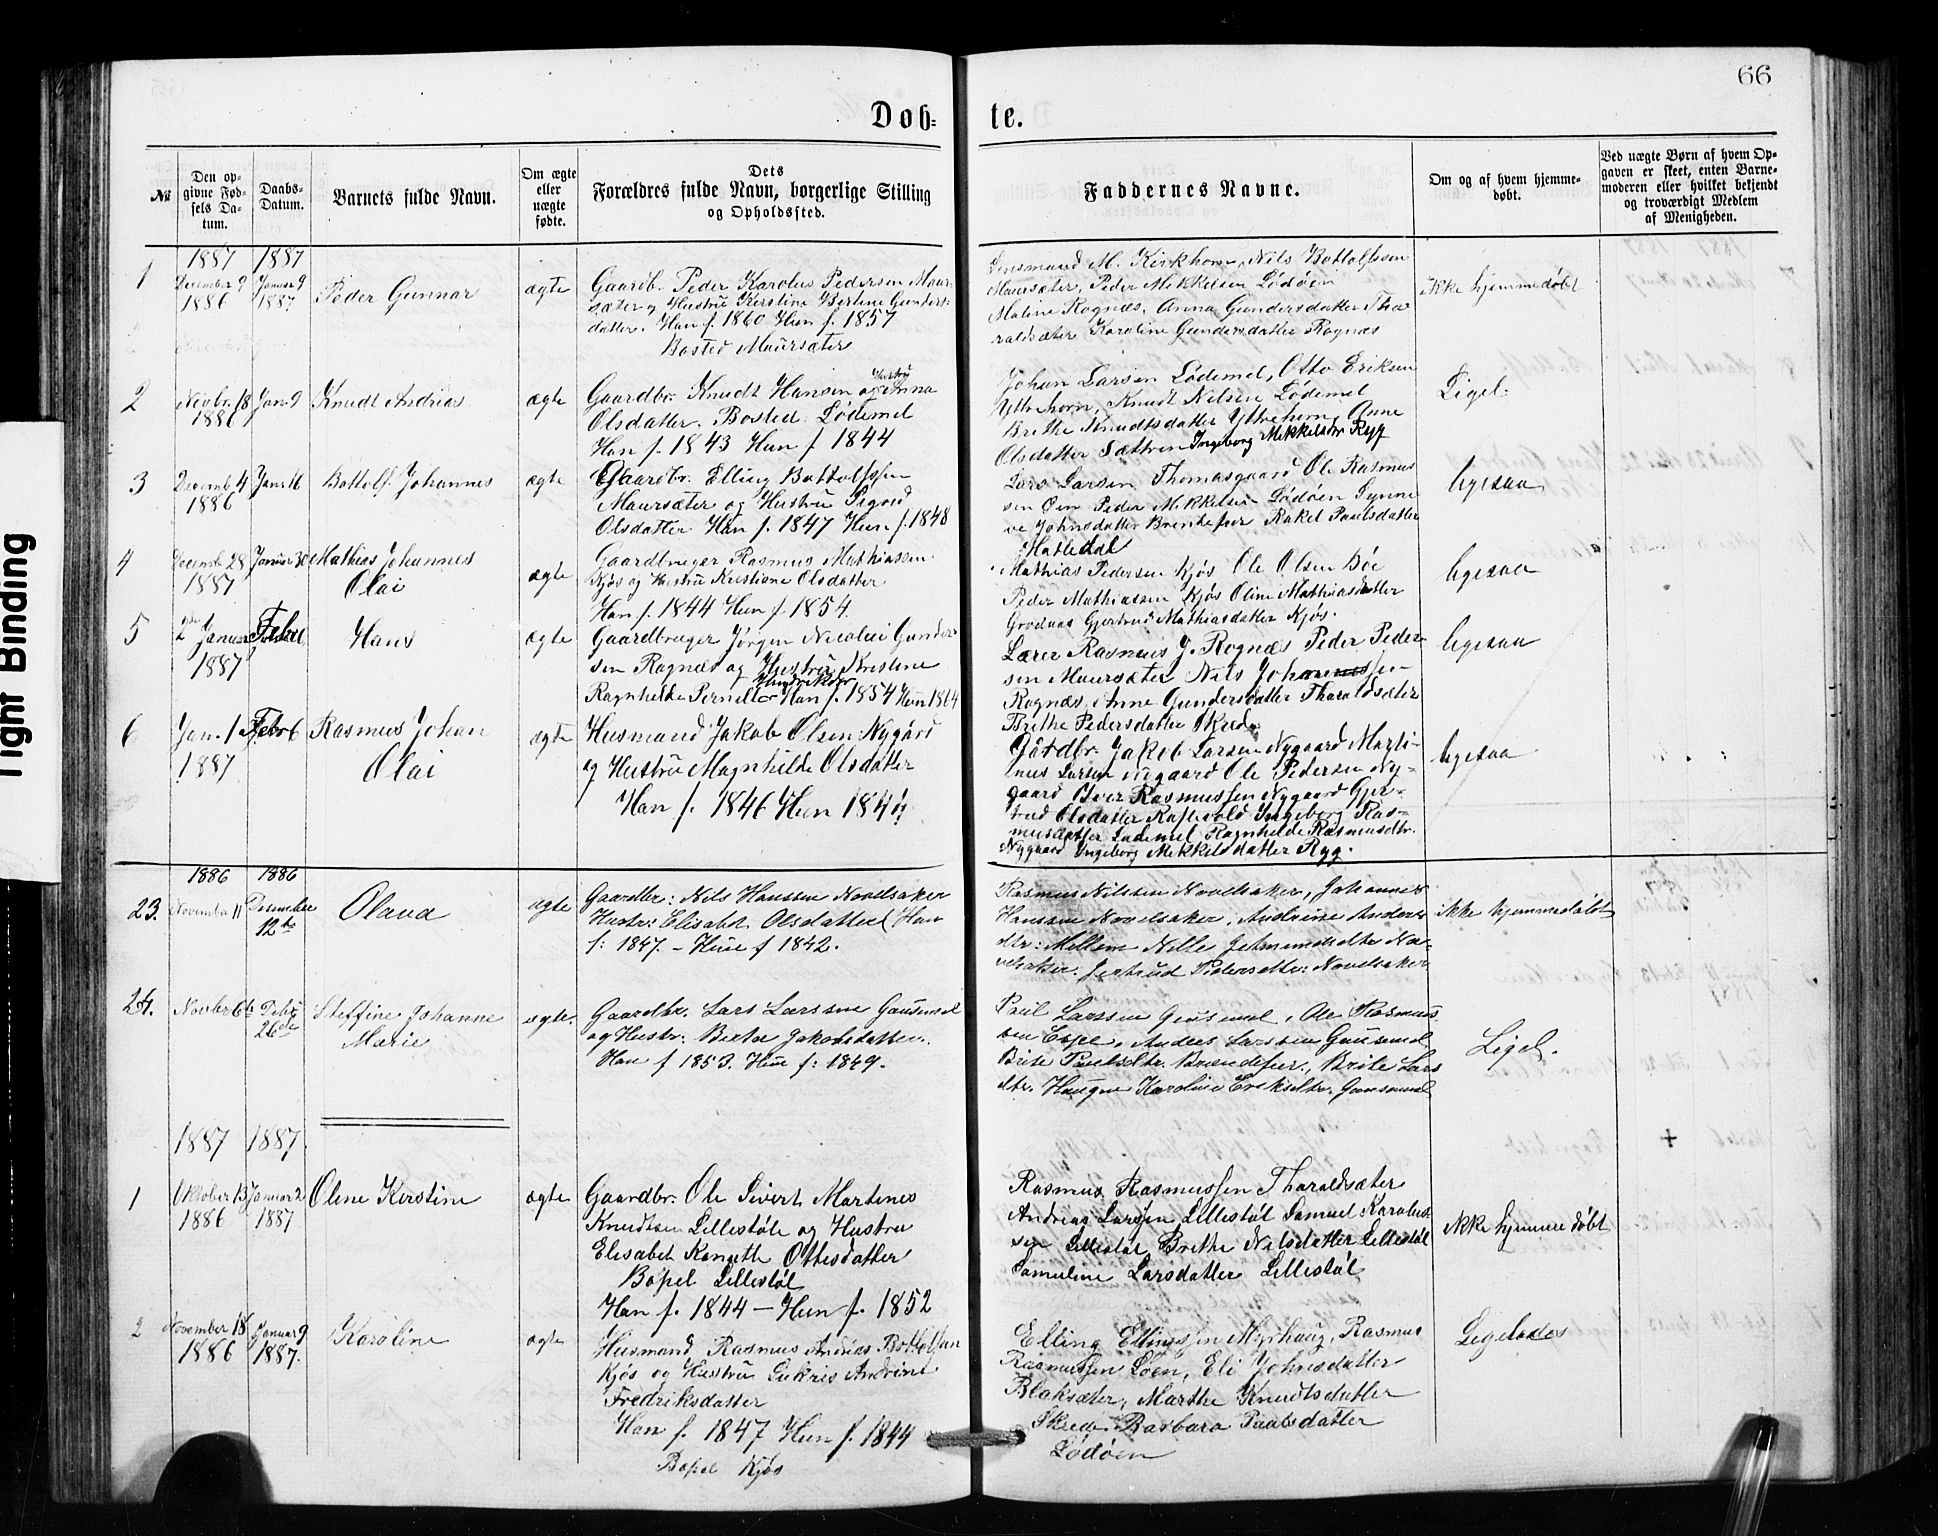 66
Døb-
te.
№
Den op-
givne Fød-
sels Da-
tum.
Daabs-
Datum.
Barnets fulde Navn.
Om ægte
eller
uægte
fødte.
Dets
Forældres fulde Navn, borgerlige Stilling
og Opholdssted.
Faddernes Navne.
Om og af hvem hjemme-
døbt.
Ved uægte Børn af hvem Op-
gaven er skeet, enten Barne-
moderen eller hvilket bekjendt
og troværdigt Medlem
af Menigheden.
1887 1887
1
December 9
1886
Januar 9
1887
Peder Gunnar
ægte
Gaardb. Peder Karolus Pedersen Maur-
sæter og Hustru Kerstine Bertine Gunders-
datter. Han f. 1860 Hun f. 1857
Bosted Maursæter
Lensmand M. Kirkhorn, Nils Bottolfssen
Maursæter, Peder Mikkelsen Lødøen
Maline Rognæs, Anna Gundersdatter Tha-
raldsæter Karoline Gundersdatter Rognæs
ikke hjemmedøbt
2
Novbr. 18
1886
Jan. 9
Knudt Andrias
ægte
Gaardbr. Knudt Hansen og Hustru Anna
Olsdatter. Bosted Lødemel
Han f. 1843 Hun f 1844
Johan Larsen Lødemel, Otto Eriksen
Yttrehorn, Knudt Nilsen Lødemel
Brithe Knudtsdatter Yttrehorn, Anne
Olsdatter Sættren Ingeborg Mikkelsdtr Ryg
Ligel.
3
Decemb 4
1886
Jan. 16
Bottolf Johannes
ægte
Gaardbr. Elling Bottolfssen
Maursæter og Hustru Sigrid
Olsdatter Han f. 1847 Hun f. 1848
Lars Larsen Thomasgaard Ole Rasmus
sen Øen Peder Mikkelsen Lødøen Synne
ve Johnsdatter Rakel Paulsdatter
Hatledal
ligesaa
4
Decemb 28
1887
Januar 30
Mathias Johannes
Olai
ægte
Gaardbruger Rasmus Mathiassen
Kjøs og Hustru Kristiane Olsdatter
Han f. 1844 Hun f. 1854
Mathias Pedersen Kjøs Ole Olsen Bøe
Peder Mathiassen Kjøs Oline Mathiasdatter
Grodaas Gjertrud Mathiasdatter Kjøs.
ligesaa
5
2 Januar
1887
Hans
ægte
Gaardbruger Jørgen Nicolai Gunder-
sen Rognæs og Hustru Kristine
Ragnhilde Pernille Hendriksdtr Han f. 1854 Hun 1864
Lærer Rasmus J. Rognæs Peder Peder-
sen Maursæter Nils Johannessen
Rognæs, Anne Gundersdatter Tharaldsæter
Brithe Pedersdatter Skrede
ligesaa
6
Jan. 1
1887
Febr 6
Rasmus Johan
Olai
ægte
Husmand Jakob Olsen Nygård
og Hustru Magnhilde Olsdatter
Han f. 1846 Hun
Gårdbr. Jakob Larsen Nygaard Marti-
nus Larsen Nygaard Ole Pedersen Ny-
gaard Iver Rasmussen Nygaard Gjer-
trud Olsdatter Raftevold Ingeborg Ras-
musdatter Lødemel Ragnhilde Rasmusdtr.
Nygaard Ingeborg Mikkelsdatter Ryg.
ligesaa
1886 1886
23.
November 11
Desember
12te
Olava
ægte
Gaardbr: Nils Hanssen Navelsaker
Hustr: Elisabet Olsdatter Han
f: 1847. – Hun f 1842.
Rasmus Nilssen Navelsaker, Johannes
Hanssen Navelsaker, Andrine Anders
dtr: Mellem Nille Na-
velsaker. Jertrud Pedersdtr: Navelsaker
ikke hjemmedøbt
24.
Novbr 6te
Debr
26de
Steffine Johanne
Marie
ægte.
Gaardbr. Lars Larssen Gausemel
og Hustr: Berthe Jakobsdatter.
Han f 1853. Hun f: 1849.
Paul Larssen Gausemel, Ole Rasmus
sen Espe, Anders Larssen Gausemel
Brite Paulsdtr. Brændefur, Brite Lars
dtr. Haugen Karoline Eriksdtr. Gausemel
Ligel.
1887 1887
1
Oktober 13
1886
Januar 2
1887
Oline Kerstine
ægte
Gaardbr. Ole Sivert Martines
Knudtsen Lillestøle og Hustru
Elisabet Ottesdatter
Bopel Lillestøl
Han f. 1844 – Hun f. 1852
Rasmus Rasmussen Tharaldsæter
Andreas Larsen Lillestøl Samuel Karolus-
sen Lillestøl Brithe Nilsdatter Lillestøl
Samuline Larsdatter Lillestøl
ikke hjemme døbt
2
November 18
1886
Januar 9
1887.
Karoline
ægte
Husmand Rasmus Andrias Bottolfsen
Kjøs og Hustru Andrine
Fredriksdatter
Han f. 1847 Hun f. 1844
Bopel Kjøs
Elling Ellingsen Myrhaug, Rasmus
Rasmussen Loen, Eli Johnsdatter
Blaksæter, Marthe Knudtsdatter
Skrede Barbara Paulsdatter
Lødøen
Ligeledes
Tight Binding